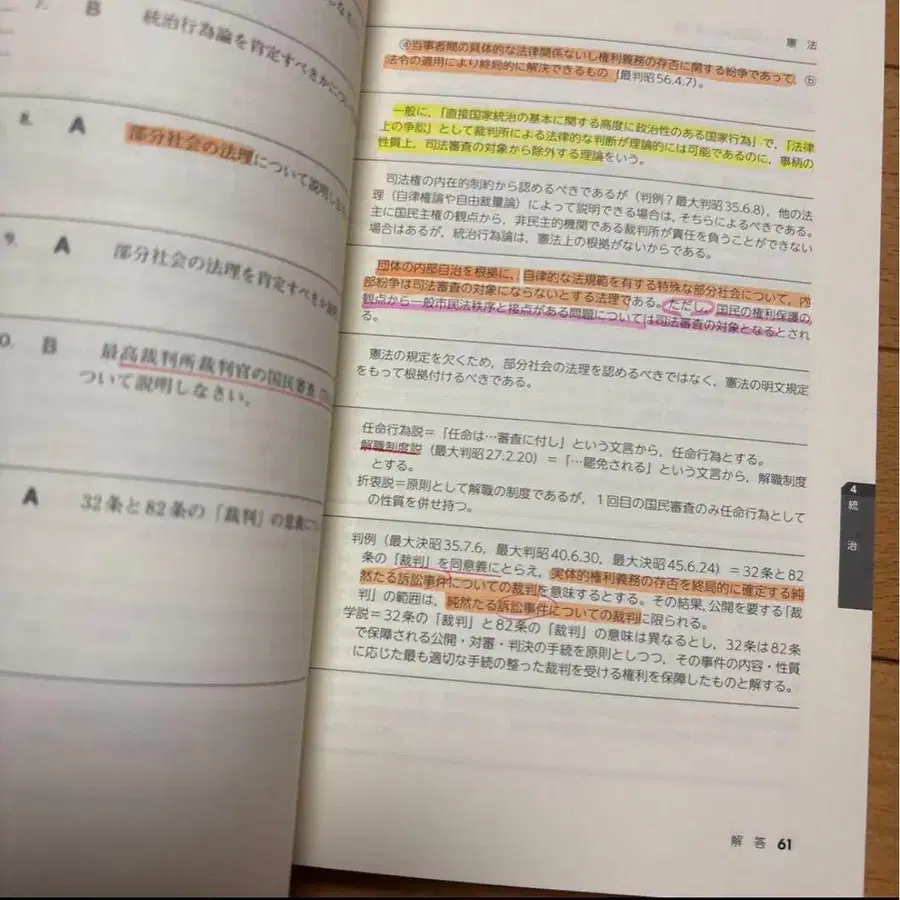 7. B 統治行為論を肯定すべきかについ
8. A 部分社会の法理について説明しな
9. A 部分社会の法理を肯定すべきか
0. B 最高裁判所裁判官の国民審査
ついて説明しなさい。
A 32条と82条の「裁判」の意義に
憲 法
ⓐ当事者間の具体的な法律関係ないし権利義務の存否に関する紛争であって、ⓑ
法令の適用により終局的に解決できるもの(最判昭56.4.7)。
一般に、「直接国家統治の基本に関する高度に政治性のある国家行為」で、「法律
上の争訟」として裁判所による法律的な判断が理論的には可能であるのに、事柄の
性質上、司法審査の対象から除外する理論をいう。
司法権の内在的制約から認めるべきであるが(判例?最大判昭35.6.8)、他の法
理(自律権論や自由裁量論)によって説明できる場合は、そちらによるべきである。
主に国民主権の観点から、非民主的機関である裁判所が責任を負うことができない
場合はあるが、統治行為論は、憲法上の根拠がないからである。
団体の内部自治を根拠に、自律的な法規範を有する特殊な部分社会について、内
部紛争は司法審査の対象にならないとする法理である。ただし、国民の権利保護の
観点から一般市民法秩序と接点がある問題については司法審査の対象となるとされ
る。
憲法の規定を欠くため、部分社会の法理を認めるべきではなく、憲法の明文規定
をもって根拠付けるべきである。
任命行為説=「任命は…審査に付し」という文言から、任命行為とする。
解職制度説(最大判昭27.2.20)=「…罷免される」という文言から、解職制度
とする。
折衷説=原則として解職の制度であるが、1回目の国民審査のみ任命行為として
の性質を併せ持つ。
判例(最大決昭35.7.6、最大判昭40.6.30、最大決昭45.6.24)=32条と82
条の「裁判」を同意義にとらえ、実体的権利義務の存否を終局的に確定する純
然たる訴訟事件についての裁判を意味するとする。その結果、公開を要する「裁
判」の範囲は、純然たる訴訟事件についての裁判に限られる。
学説=32条の「裁判」と82条の「裁判」の意味は異なるとし、32条は82条
で保障される公開・対審・判決の手続を原則としつつ、その事件の内容・性質
に応じた最も適切な手続の整った裁判を受ける権利を保障したものと解する。
4
統
治
解 答 61